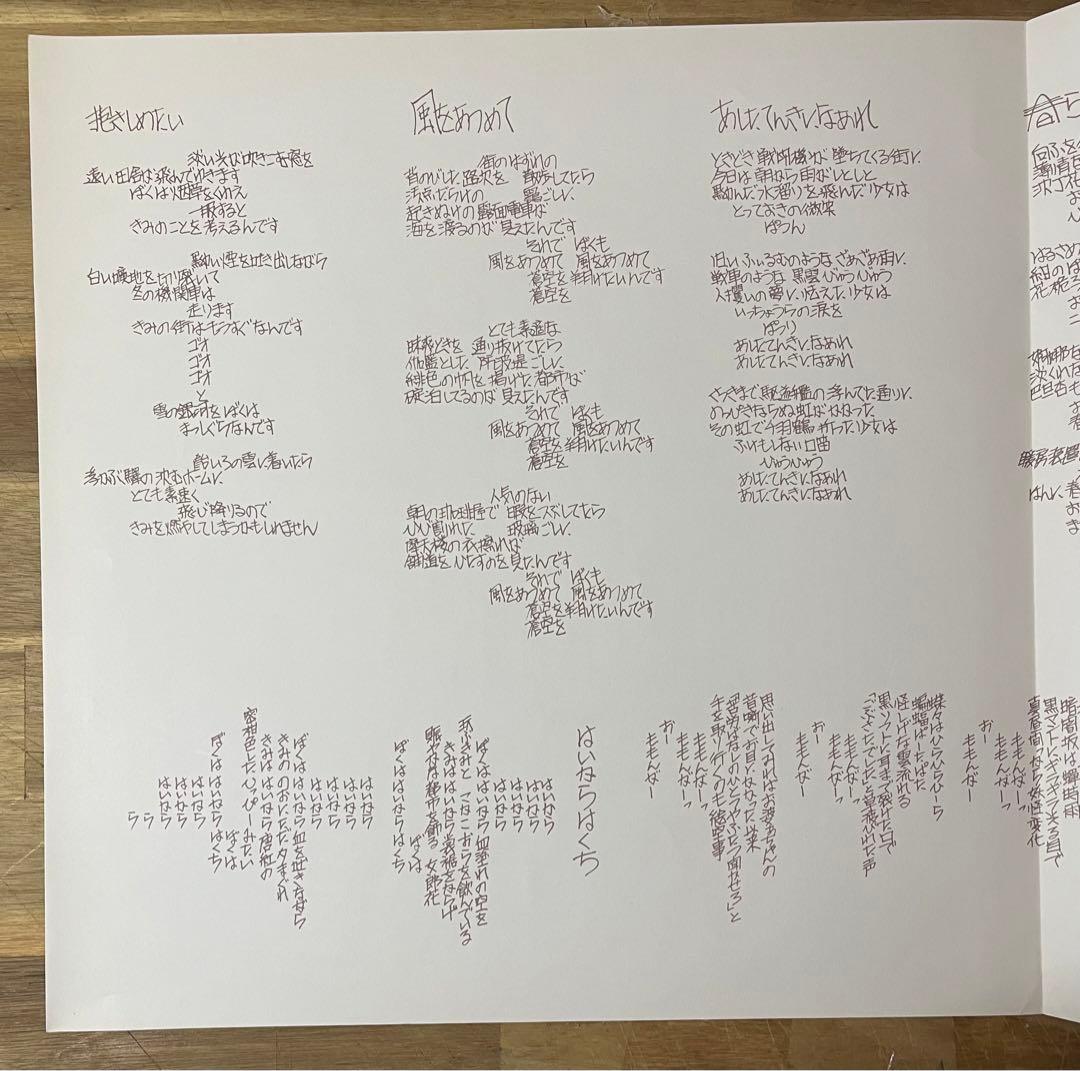 抱きしめたい
淡い光が吹きこむ窓を
遠い田舎が飛んでゆきます
ぼくは烟草をくわえ
一服すると
きみのことを考えるんです
黝い煙を吐き出しながら
白い曠地を切り裂いて
冬の機関車は
走ります
きみの街はもうすぐなんです
ゴオ
ゴオ
ゴオ
と
雪の銀河をぼくは
まっしぐらなんです
飴いろの雲に着いたら
浮かぶ驛の沈むホームに
とても素速く
飛び降りるので
きみを燃やしてしまうかもしれません
風をあつめて
街のはずれの
背のびした路次を 散歩してたら
汚点だらけの 靄ごしに
起きぬけの露面電車が
海を渡るのが 見えたんです
それで ぼくも
風をあつめて 風をあつめて
蒼空を翔けたいんです
蒼空を
とても素適な
昧爽どきを 通り抜けてたら
伽藍とした 防波堤ごしに
緋色の帆を掲げた都市が
碇泊してるのが 見えたんです
それで ぼくも
風をあつめて 風をあつめて
蒼空を翔けたいんです
蒼空を
人気のない
朝の珈琲屋で 暇をつぶしてたら
ひび割れた 玻璃ごしに
摩天楼の衣擦れが
舗道をひたすのを見たんです
それで ぼくも
風をあつめて 風をあつめて
蒼空を翔けたいんです
蒼空を
あしたてんきになあれ
ときどき戦闘機が墮ちてくる街に
今日は朝から雨がしとしと
黝んだ水溜りを飛んだ少女は
とっておきの微笑
ぱつん
旧いふぃるむのようなざあざあ雨に
戦車のような黒雲びゅうびゅう
人攫いの夢に怯えた少女は
いっちょうらの涙を
ぽつり
あしたてんきになあれ
あしたてんきになあれ
さっきまで駆逐艦の浮んでた通りに
のっぴきならぬ虹がかかった
その虹で千羽鶴折った少女は
ふけもしない口笛
ひゅうひゅう
あしたてんきになあれ
あしたてんきになあれ
暗闇坂は蝉時雨
黒マントにギラギラ光る目で
真昼間から妖怪変化
ももんがーっ
ももんがーっ
おー
ももんがー
蝶々はひらひらひーら
蝙蝠ぱーたぱた
怪しげな雲流れる
黒いソフトに耳まで裂けた口で
「ごぶさたでした」と昼飛びれた声
ももんがーっ
ももんがーっ
おー
ももんがー
思い出してみればお婆あちゃんの
昔噺でお目にかかった以来
「巫山戯ばなしのひとつやふたつ聞かせろ」と
手を取り行くのも絵空事
ももんがーっ
ももんがーっ
おー
ももんがー
はいからはくち
はいから
はいから
はいから
はいから
ぼくははいから血塗れの空を
玩ぶきみと こかこおらを飲んでいる
きみははいから裳裾をならげ
賑やかな秘密を飾る 女郎花
ぼくは
ぼくははいからはくち
はいから
はいから
はいから
はいから
ぼくははいから血を吐きながら
きみののおにただ夕まぐれ
きみははいから唐紅の
蜜柑色したひっぴーみたい
ぼくは
ぼくははいからはくち
はいから
はいから
はいから
ら
ら